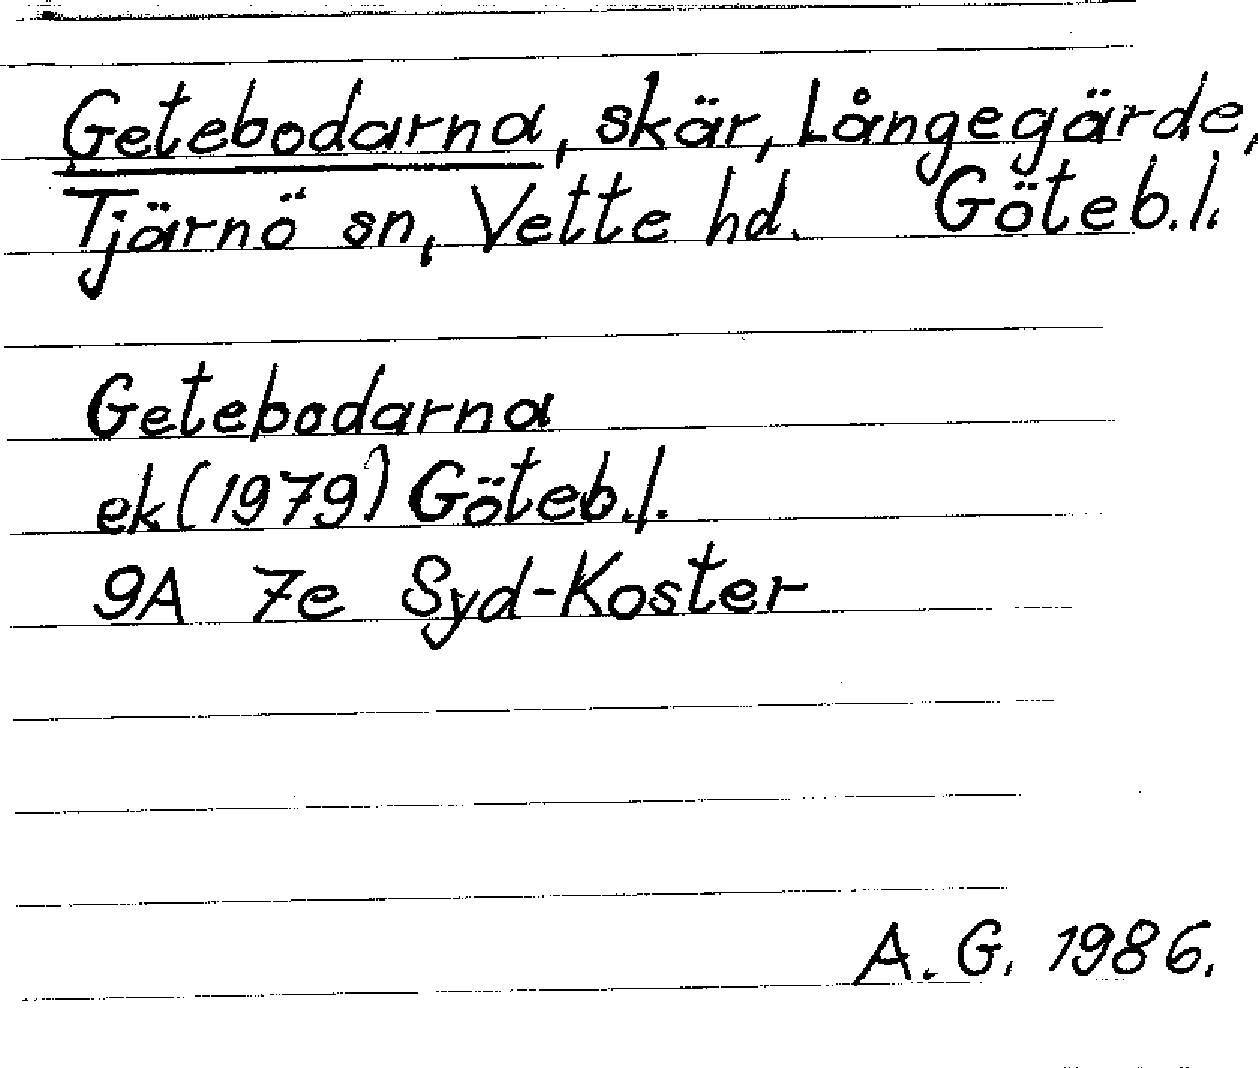 Getebodarna, skär, Långegärde,
Tjärnö sn, Vette hd. Göteb.l.
Getebodarna
ek (1979) Göteb.l.
9A 7e Syd-Koster
A.G. 1986.